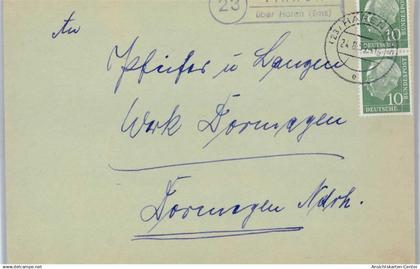 23
über Haren (Ems)
(23) HAREN
10
DEUTSCHE BUNDESPOST
10
DEUTSCHE BUNDESPOST
An
Pfeifer u Langen
Werk Dormagen
Dormagen Ndrh.
Ansichtskarten-Center